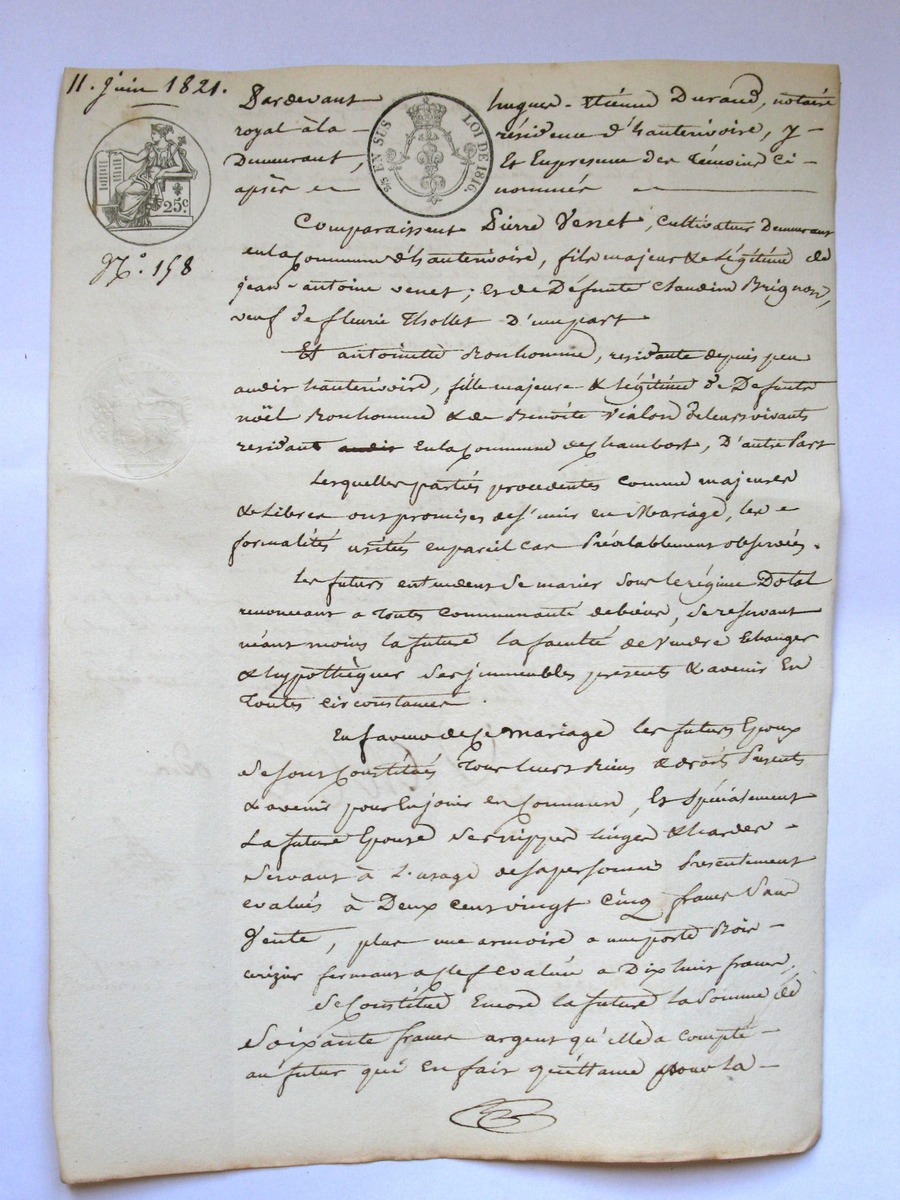 11. Juin 1821.
Pardevant hugues-Etiénne Durand, notaire
royal à la - résidence d'hauterivoire, y-
Demeurant, Et En presence des témoins Ci-
après nommés
EN SUS LOI DE 1816.
25c.
N.° 158
Comparaissent Pierre Venet, cultivateur demeurant
en la Commune d'hauterivoire, fils majeur & Légitime de
jean-antoine venet; et de Défunte Claudine Brignon,
veuf de fleurie Thollet D'une part
Et antoinette Bonhomme, residante depuis peu
audit hauterivoire, fille majeure & légitime de Defunts
noël Bonhomme & de Benoite vialon de leurs vivants
residant audit en la Commune de Chambost, D'autre Part
Lesquelles partiés procedentes comme majeures
& Libres ont promises de S'unir en Mariage, les
formalités usitées en pareil cas Préalablement observées.
Les futurs entendent Se marier sous le régime Dotal
renonceant a toute communauté de biens, se reservant
néant moins la future la faculté de Vendre Echanger
& hypothèquer Ses jmmeubles présents & avenir En
toutes circonstances.
En faveur de Ce mariage les futurs Epoux
Se sont Constitués tous leurs Biens & droits Presents
& avenir pour En jouir en Commun, Et Spécialement
La future Epouse Ses nippes linges & hardes -
Servant à L'usage de sa personne Presentement
evalués à Deux cent vingt Cinq francs Sans
Vente, plus une armoire a une porte Bois -
cerizier fermant a clef evaluée a Dix huit francs,
Se Constitue Encore la future la Somme de
Soixante francs argent qu'elle a compté -
au futur qui En fait quittance pour la -